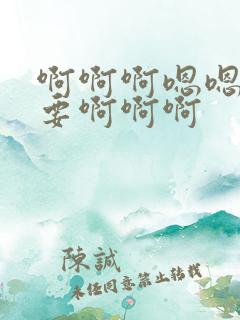 啊啊啊嗯嗯
要啊啊啊
陳誠
未任同意禁止转载